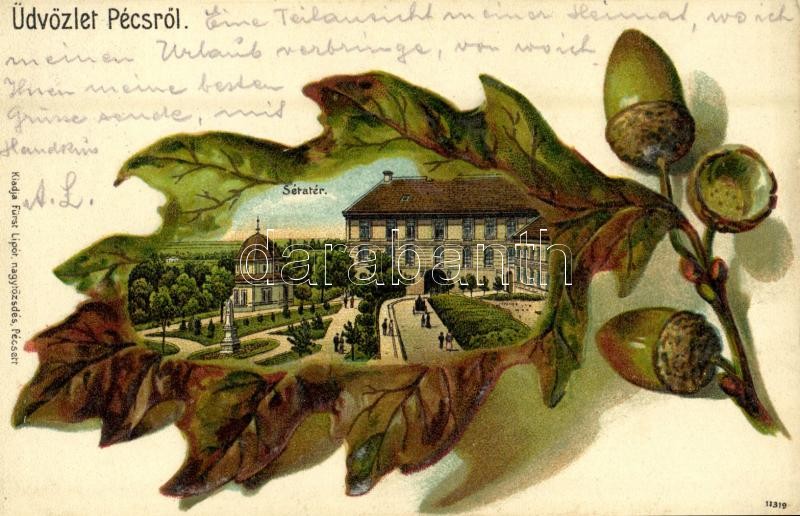 Üdvözlet Pécsről.
Eine Teilansicht meiner Heimat, wo ich
meinen Urlaub verbringe, von wo ich
Ihnen meine besten
Grüsse sende, mit
Handkuss
A. L.
Sétatér.
darabanth
Kiadja Fürst Lipót, nagytőzsdés, Pécsett
11319